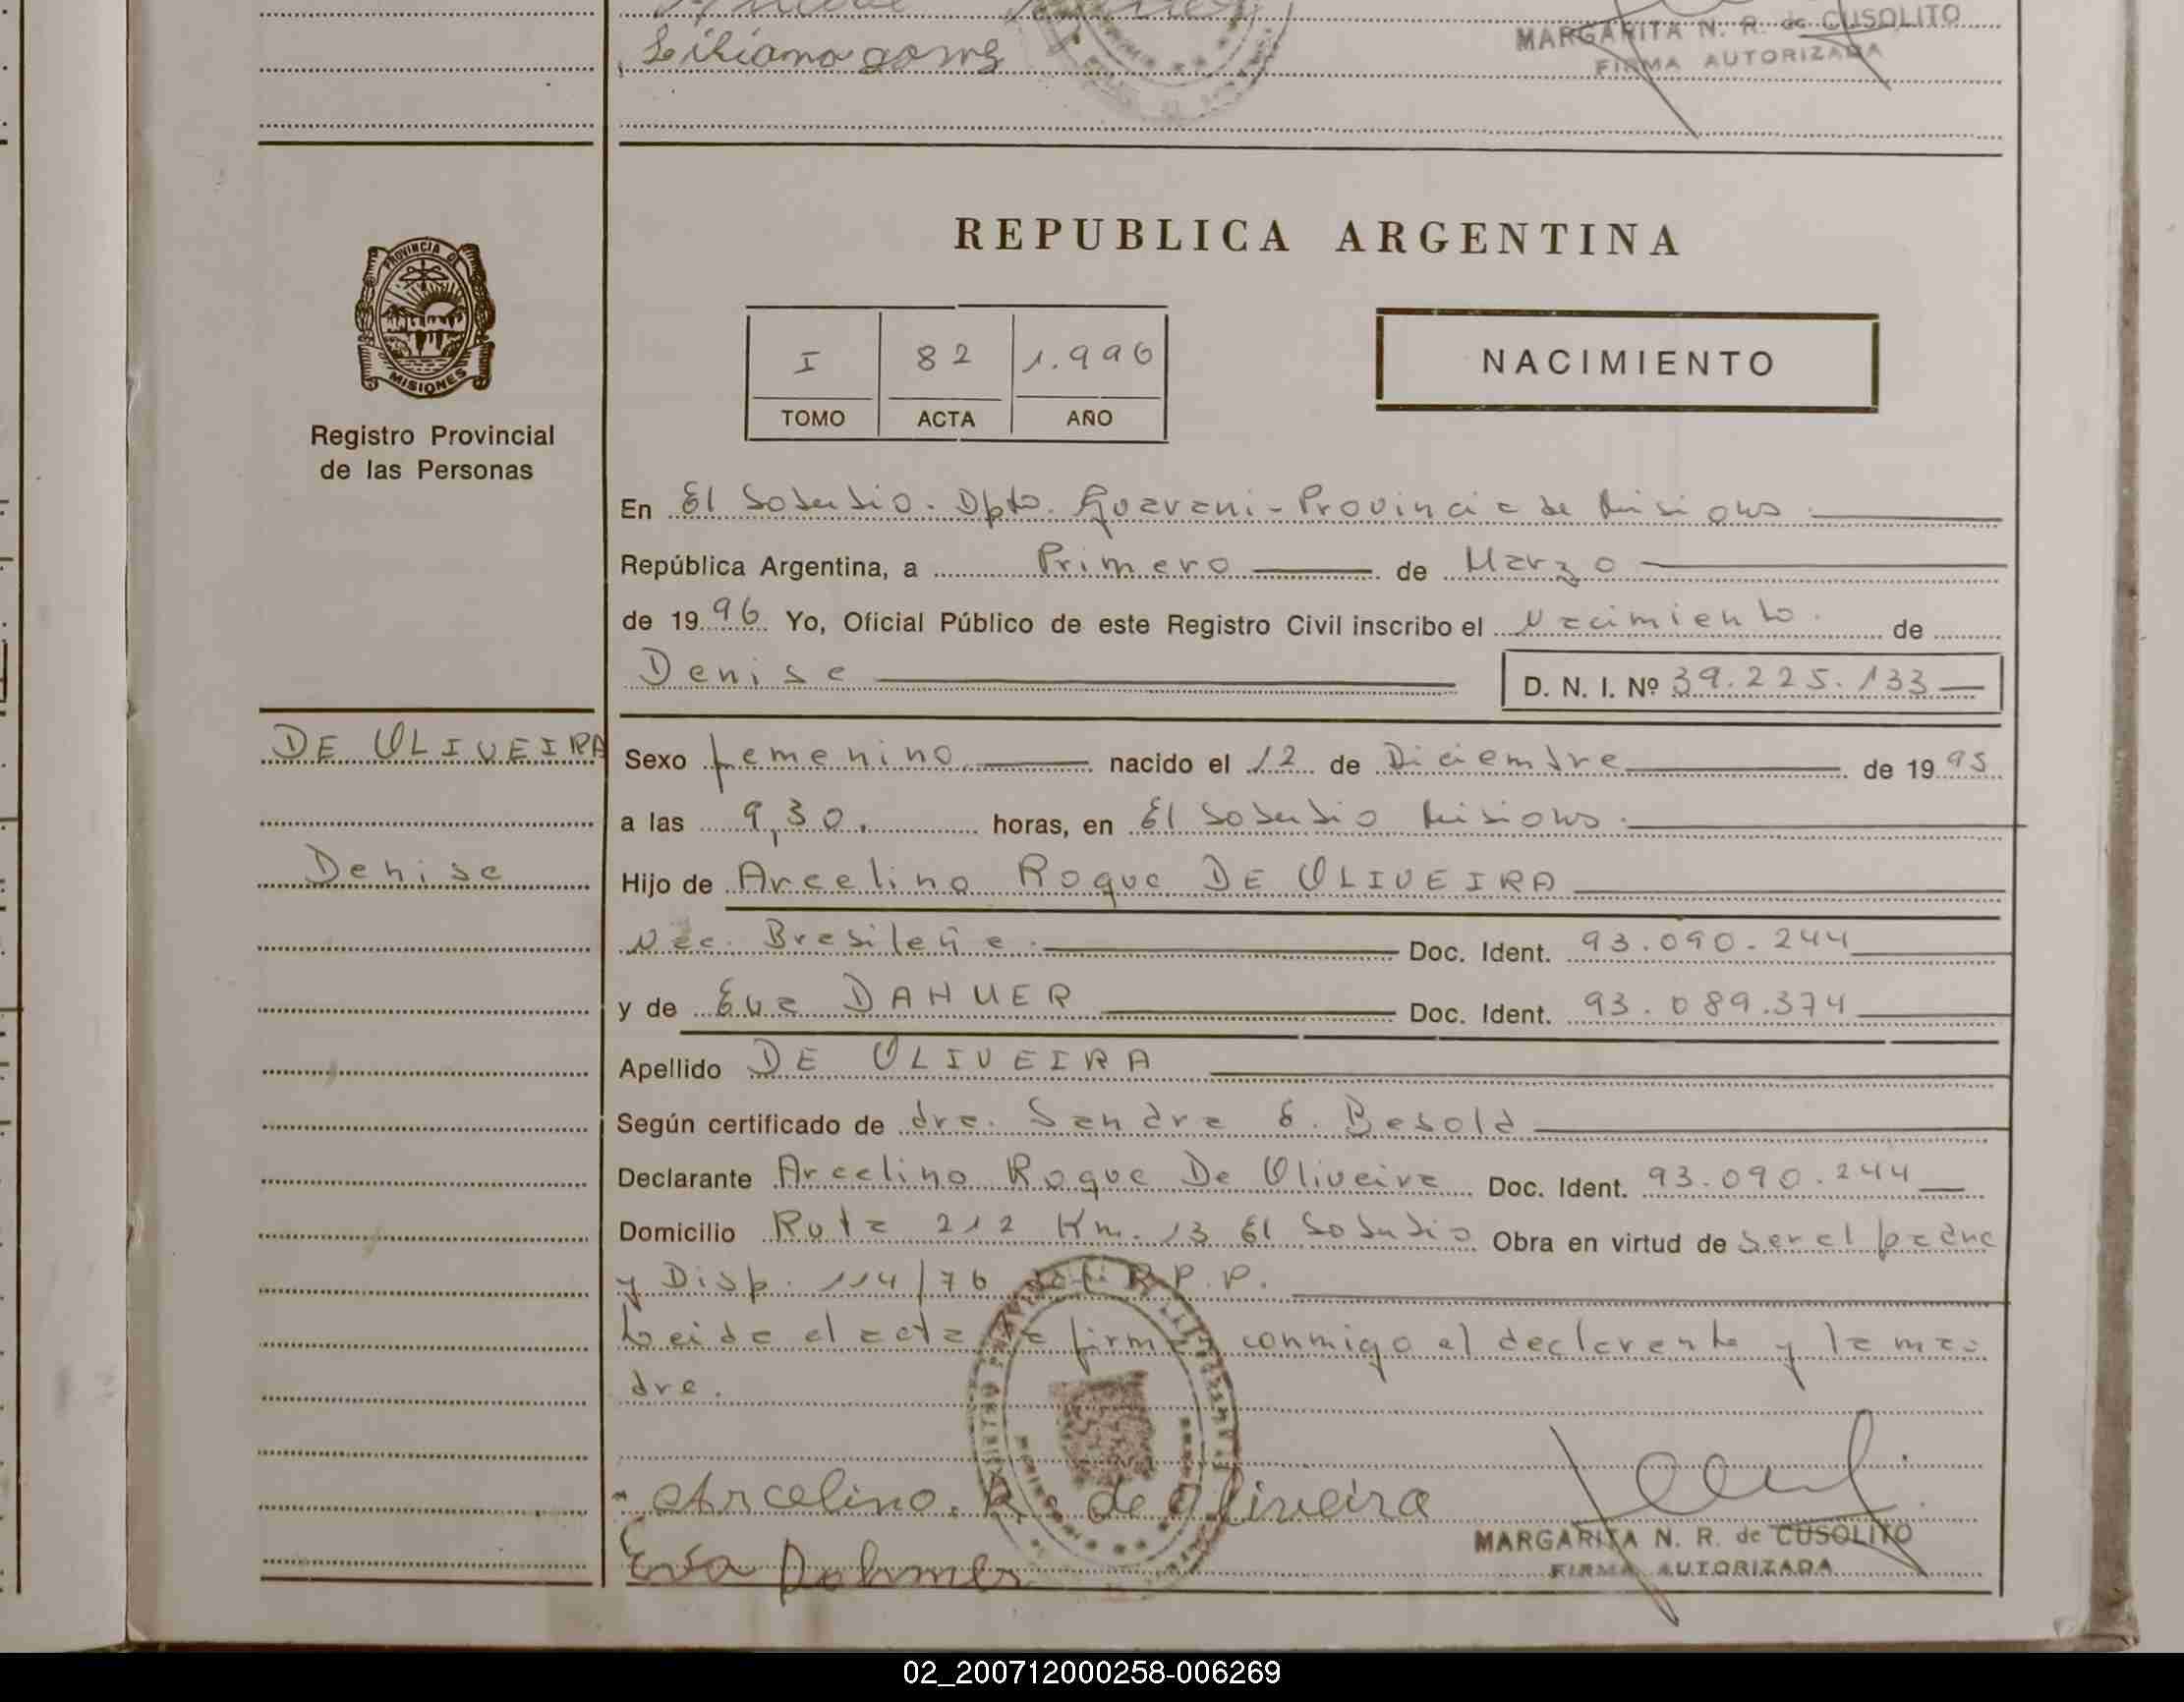 Liliana gomez
MARGARITA N. R. de CUSOLITO
FIRMA AUTORIZADA
REPUBLICA ARGENTINA
PROVINCIA DE
MISIONES
Registro Provincial
de las Personas
I 82 1.996
TOMO ACTA AÑO
NACIMIENTO
En El Soberbio. Dpto. Guarani - Provincia de Misiones.
República Argentina, a Primero de Marzo
de 1996 Yo, Oficial Público de este Registro Civil inscribo el Nacimiento. de
Denise D. N. I. Nº 39.225.133
DE OLIVEIRA
Denise
Sexo femenino nacido el 12 de Diciembre de 1995
a las 9,30. horas, en El Soberbio Misiones.
Hijo de Arcelino Roque DE OLIVEIRA
Nac. Brasileña. Doc. Ident. 93.090.244
y de Eva DAHMER Doc. Ident. 93.089.374
Apellido DE OLIVEIRA
Según certificado de dra. Sandra E. Besold
Declarante Arcelino Roque De Oliveira Doc. Ident. 93.090.244
Domicilio Ruta 212 Km. 13 El Soberbio Obra en virtud de ser el padre
y Disp. 114/76 del R.P.P.
Leida el acta la firma conmigo el declarante y la ma=
dre.
Arcelino. R. de Oliveira
Eva Dahmer
MARGARITA N. R. de CUSOLITO
FIRMA AUTORIZADA
02_200712000258-006269